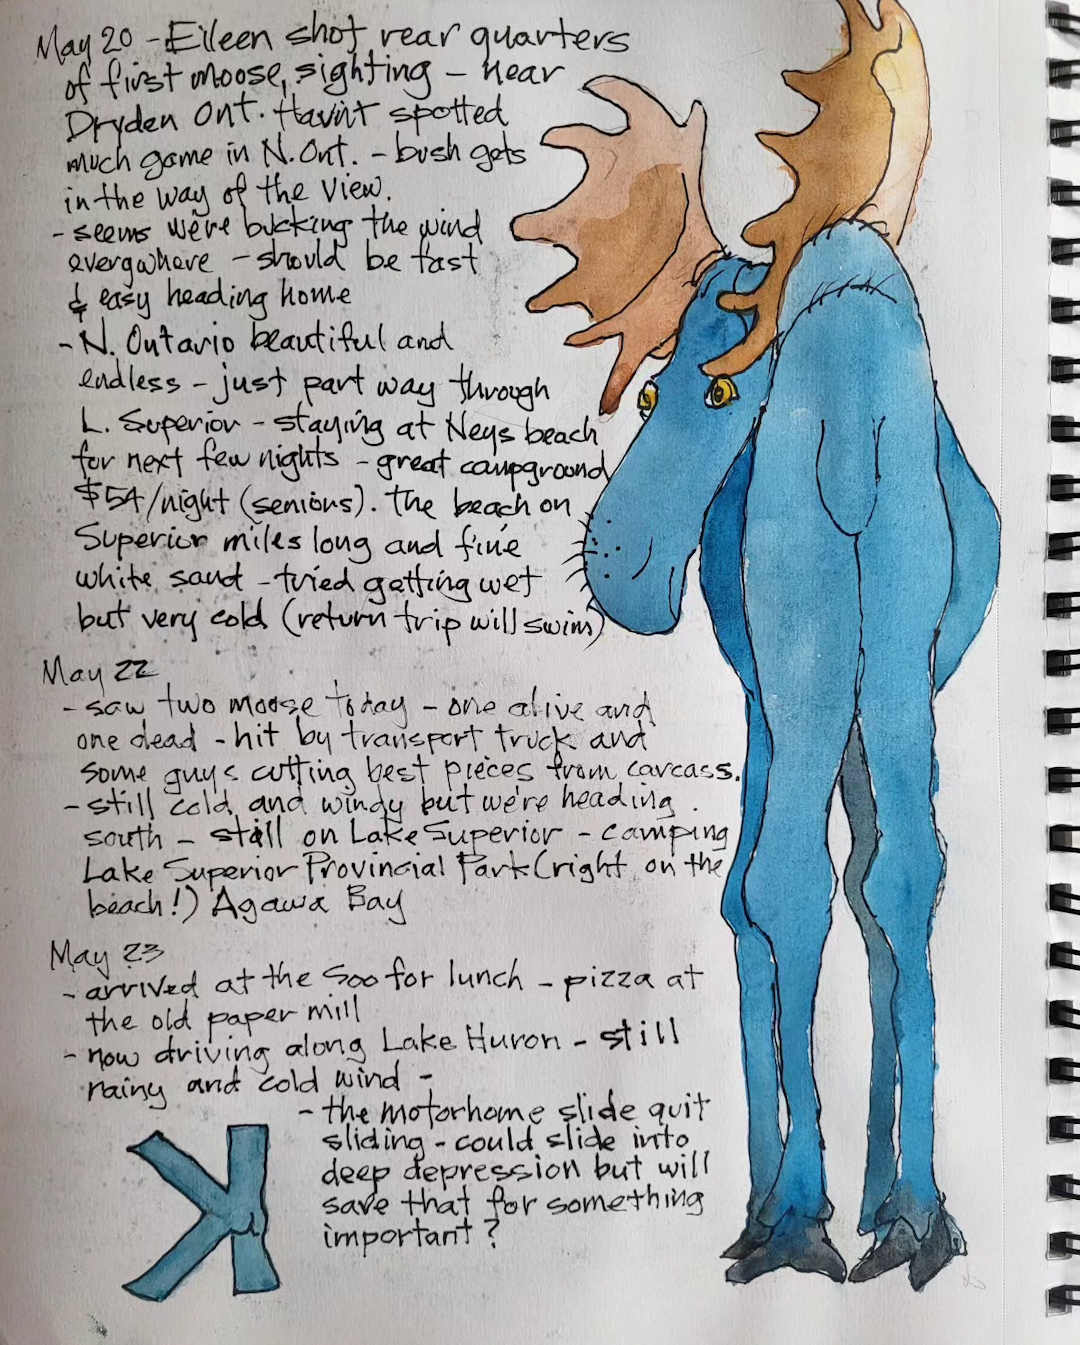 May 20 - Eileen shot rear quarters
of first moose, sighting - near
Dryden Ont. Hav'nt spotted
much game in N. Ont. - bush gets
in the way of the view.
- seems we're bucking the wind
everywhere - should be fast
& easy heading home
- N. Ontario beautiful and
endless - just part way through
L. Superior - staying at Neys beach
for next few nights - great campground
$54/night (seniors). the beach on
Superior miles long and fine
white sand - tried getting wet
but very cold (return trip will swim)
May 22
- saw two moose today - one alive and
one dead - hit by transport truck and
some guys cutting best pieces from carcass.
- still cold and windy but we're heading
south - still on Lake Superior - camping
Lake Superior Provincial Park (right on the
beach!) Agawa Bay
May 23
- arrived at the Soo for lunch - pizza at
the old paper mill
- now driving along Lake Huron - still
rainy and cold wind -
- the motorhome slide quit
sliding - could slide into
deep depression but will
save that for something
important?